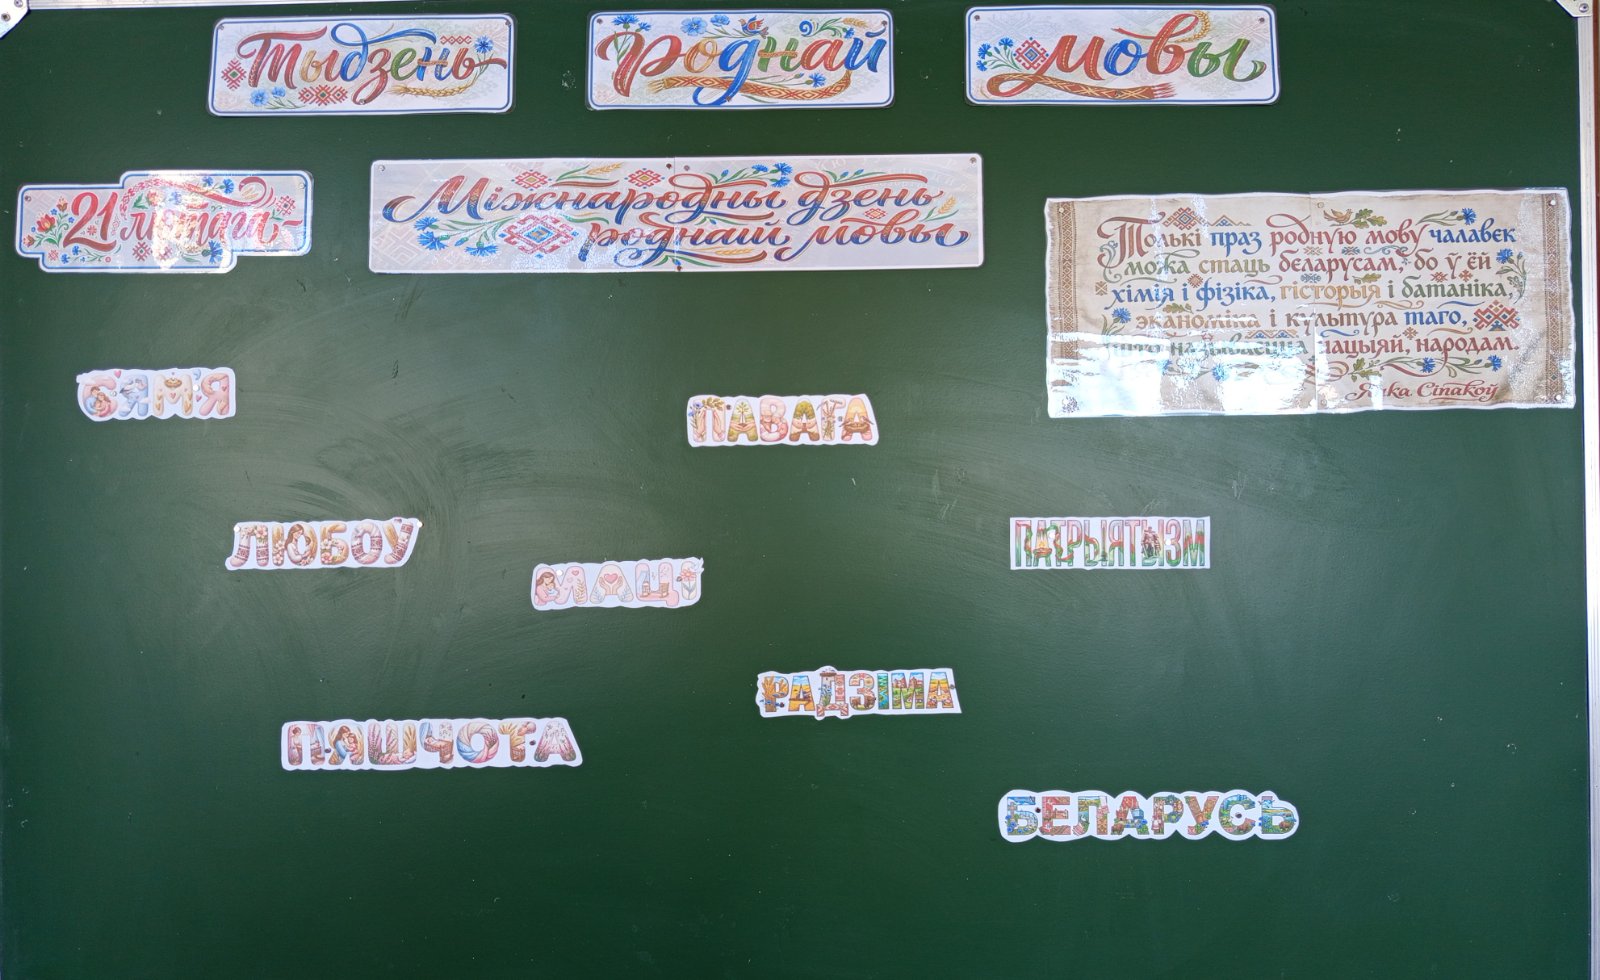 Тыдзень роднай мовы
21 лютага -
Міжнародны дзень
роднай мовы
Толькі праз родную мову чалавек
можа стаць беларусам, бо ў ёй
хімія і фізіка, гісторыя і батаніка,
эканоміка і культура таго,
што называецца нацыяй, народам.
Янка Сіпакоў
СЯМ'Я
ПАВАГА
ЛЮБОЎ
ПАТРЫЯТЫЗМ
МАЦІ
РАДЗІМА
ПЯШЧОТА
БЕЛАРУСЬ